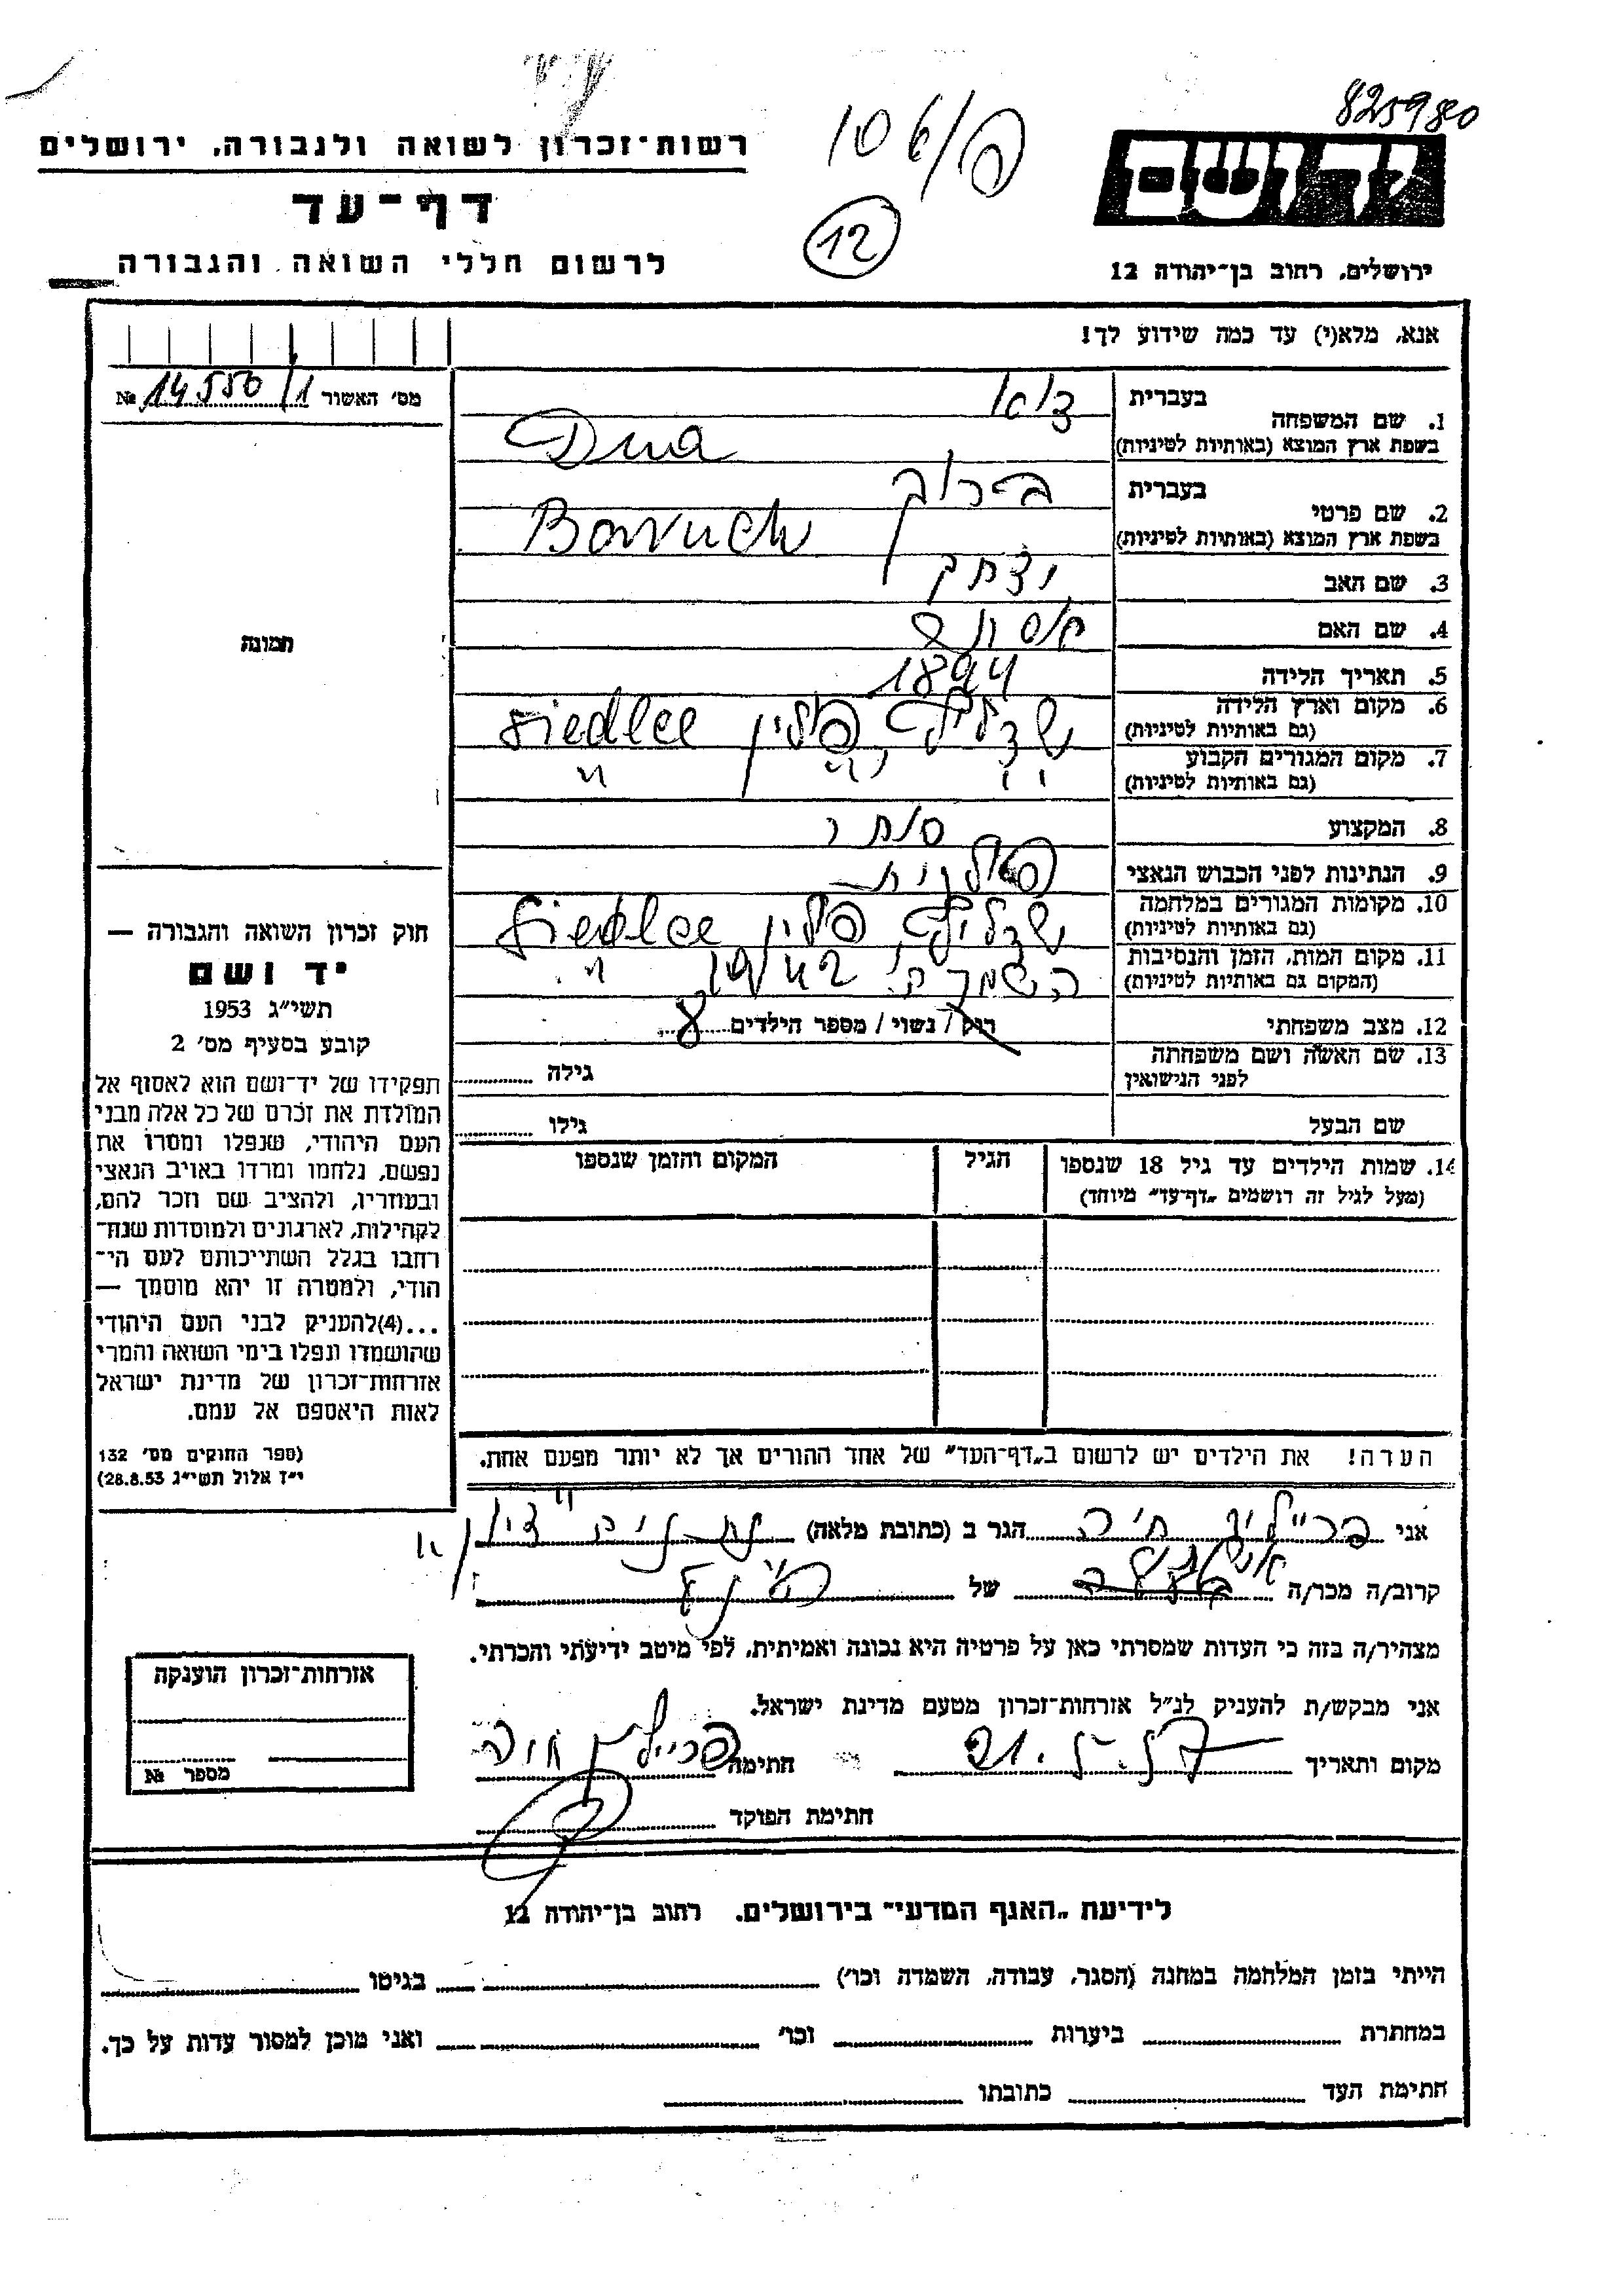 825980
106/פ
12
יד ושם
ירושלים, רחוב בן־יהודה 12
רשות־זכרון לשואה ולגבורה, ירושלים
דף־עד
לרשום חללי השואה והגבורה
אנא, מלא(י) עד כמה שידוע לך!
מס׳ האשור 14550/1 №
1. שם המשפחה
בעברית
בשפת ארץ המוצא (באותיות לטיניות) Dua
2. שם פרטי
בעברית ברוך
בשפת ארץ המוצא (באותיות לטיניות) Boruch
3. שם האב יצחק
4. שם האם
5. תאריך הלידה 1894
6. מקום וארץ הלידה
(גם באותיות לטיניות) שדליץ, פולין Siedlce
7. מקום המגורים הקבוע
(גם באותיות לטיניות) " " "
8. המקצוע סוחר
9. הנתינות לפני הכבוש הנאצי פולנית
10. מקומות המגורים במלחמה
(גם באותיות לטיניות) שדליץ, פולין Siedlce
11. מקום המות, הזמן והנסיבות
(המקום גם באותיות לטיניות) 1942 "
12. מצב משפחתי רוק / נשוי / מספר הילדים 8
13. שם האשה ושם משפחתה
לפני הנישואין גילה
שם הבעל גילו
14. שמות הילדים עד גיל 18 שנספו הגיל המקום והזמן שנספו
(מעל לגיל זה רושמים „דף־עד" מיוחד)
הערה! את הילדים יש לרשום ב„דף־העד" של אחד ההורים אך לא יותר מפעם אחת.
תמונה
חוק זכרון השואה והגבורה —
יד ושם
תשי״ג 1953
קובע בסעיף מס׳ 2
תפקידו של יד־ושם הוא לאסוף אל
המולדת את זכרם של כל אלה מבני
העם היהודי, שנפלו ומסרו את
נפשם, נלחמו ומרדו באויב הנאצי
ובעוזריו, ולהציב שם וזכר להם,
לקהילות, לארגונים ולמוסדות שנח־
רחבו בגלל השתייכותם לעם הי־
הודי, ולמטרה זו יהא מוסמך —
...(4)להעניק לבני העם היהודי
שהושמדו ונפלו בימי השואה והמרי
אזרחות־זכרון של מדינת ישראל
לאות היאספם אל עמם.
(ספר החוקים מס׳ 132
י״ז אלול תשי״ג 28.8.53)
אני פריליך חיה הגר ב (כתובת מלאה)
קרוב/ה מכר/ה של
מצהיר/ה בזה כי העדות שמסרתי כאן על פרטיה היא נכונה ואמיתית, לפי מיטב ידיעתי והכרתי.
אני מבקש/ת להעניק לנ״ל אזרחות־זכרון מטעם מדינת ישראל.
מקום ותאריך חתימה
חתימת הפוקד
אזרחות־זכרון הוענקה
מספר №
לידיעת „האגף המדעי" בירושלים, רחוב בן־יהודה 12
הייתי בזמן המלחמה במחנה (הסגר, עבודה, השמדה וכו׳) בגיטו
במחתרת ביערות וכו׳ ואני מוכן למסור עדות על כך.
חתימת העד כתובתו